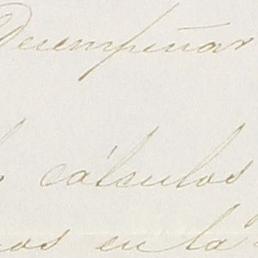 Desempeñar
cálculos
en la